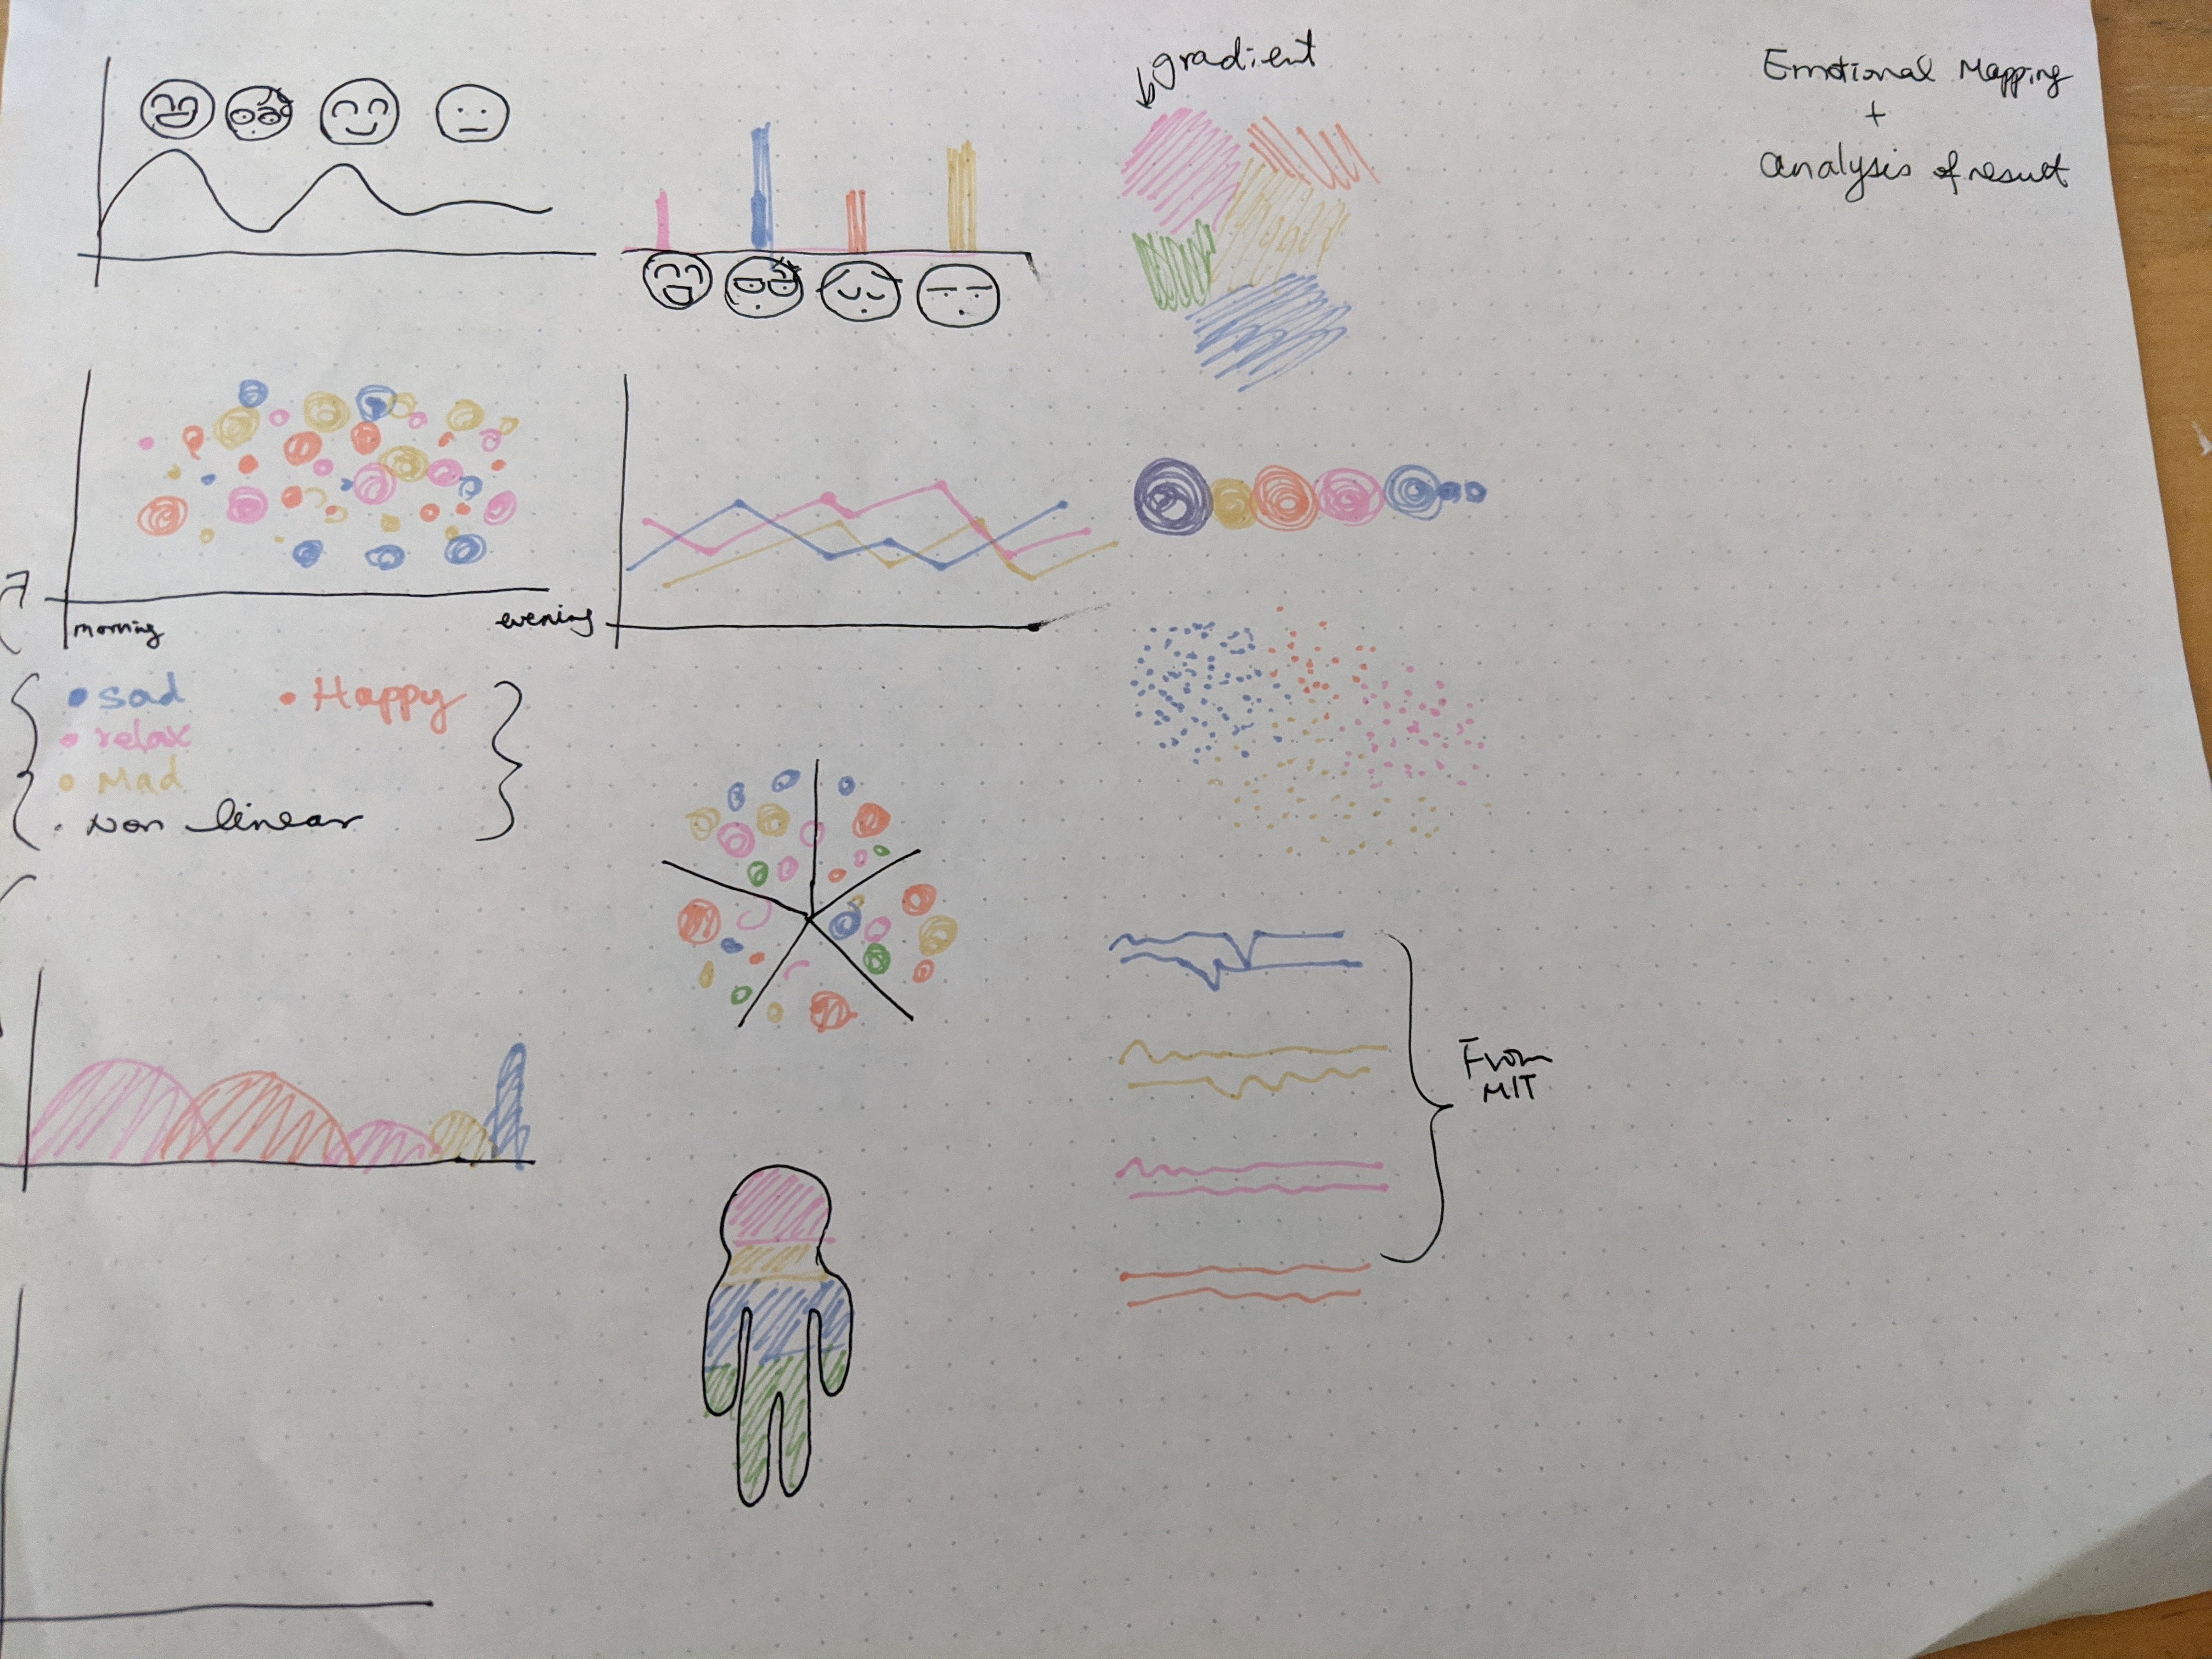 gradient
Emotional Mapping
+
Analysis of result
morning
evening
sad
Happy
relax
Mad
Non linear
From
MIT